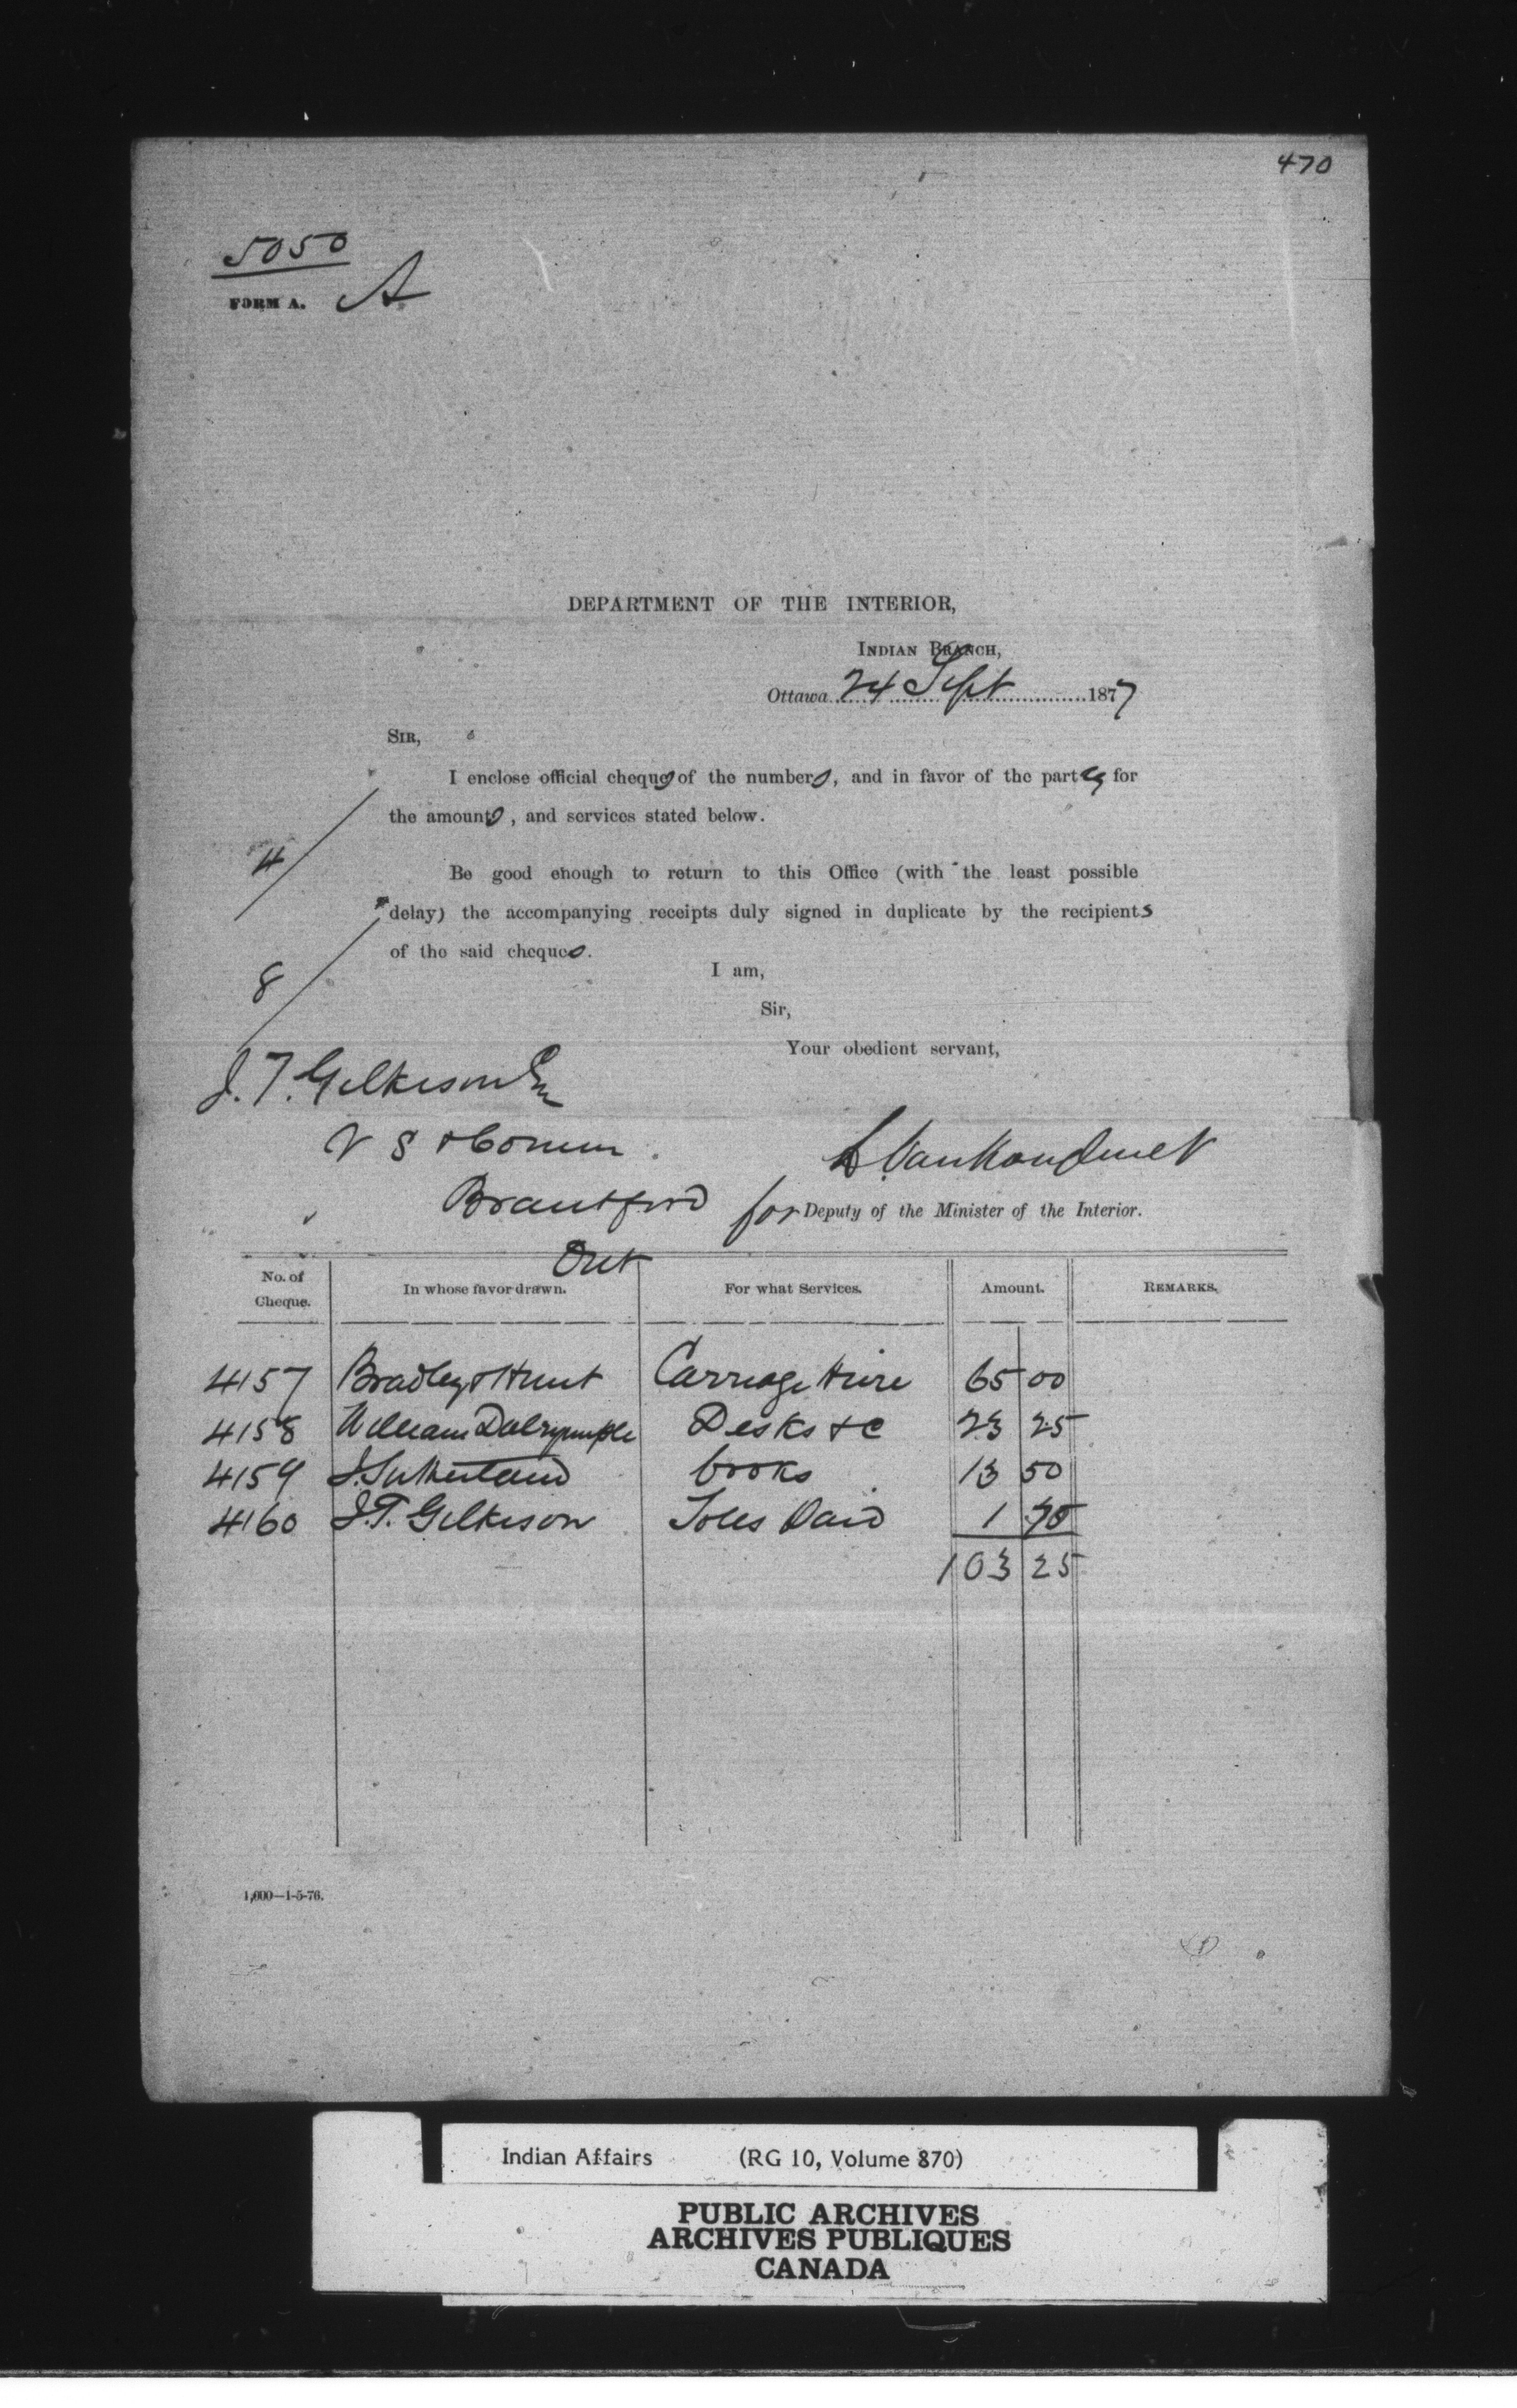 470
5050
FORM A. A
DEPARTMENT OF THE INTERIOR,
INDIAN BRANCH,
Ottawa 24 Sept 1877
SIR,
I enclose official cheques of the numbers, and in favor of the parties for
the amounts, and services stated below.
4
Be good enough to return to this Office (with the least possible
delay) the accompanying receipts duly signed in duplicate by the recipients
of the said cheques.
8
I am,
Sir,
Your obedient servant,
J. T. Gilkison Esq
V S & Comm
L. Vankoughnet
Brantford
for Deputy of the Minister of the Interior.
Ont
No. of Cheque. In whose favor drawn. For what Services. Amount. REMARKS.
4157 Bradley & Hunt Carriage Hire 65 00
4158 William Dalrymple Desks &c 23 25
4159 J. Sutherland books 13 50
4160 J.T. Gilkison Toles Paid 1 50
103 25
1,000—1-5-76.
Indian Affairs (RG 10, Volume 870)
PUBLIC ARCHIVES
ARCHIVES PUBLIQUES
CANADA